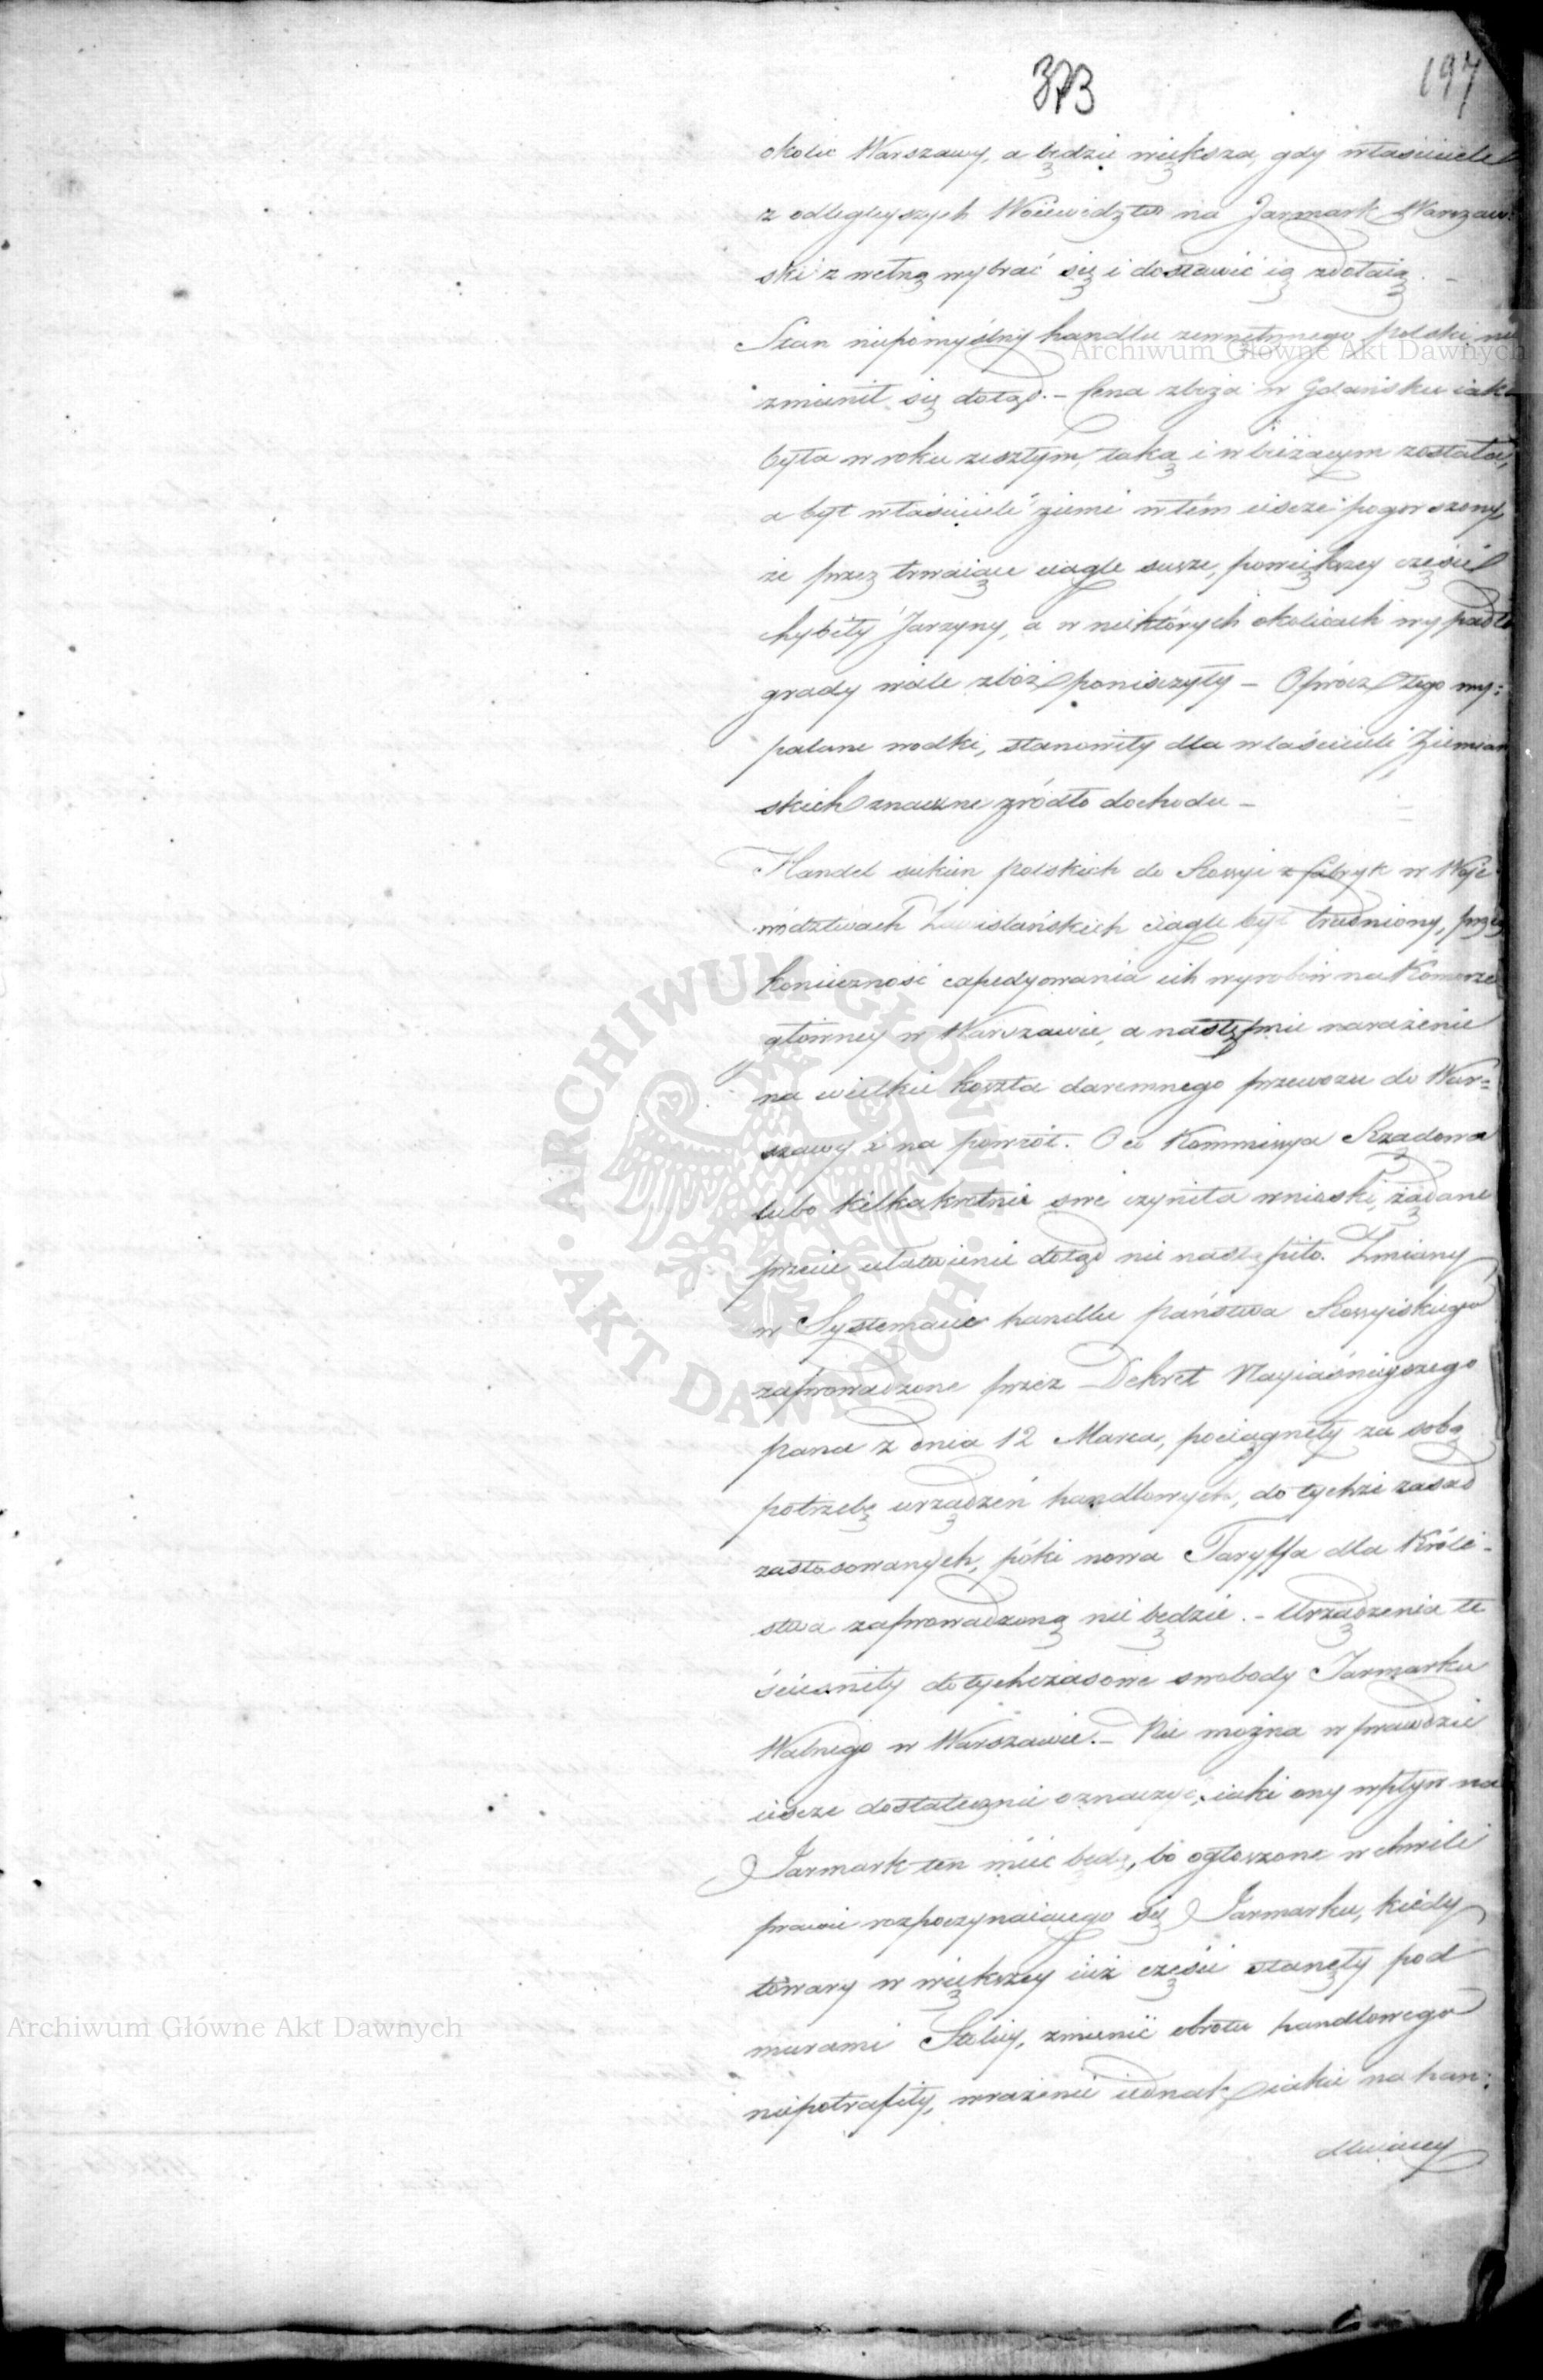 373
197
okolic Warszawy, a będzie większa, gdy właściciele
z odległeyszych Woiewództw na Jarmark Warszaw:
ski z wełną wybrać się i dostawić ią zdołaią. –
Stan niepomyślny handlu zewnętrznego polski nie
zmienił się dotąd. – Cena zboża w Gdańsku iak
była w roku zeszłym, taką i w bieżącym została,
a byt właścicieli ziemi w tém ieszcze pogorszony,
że przez trwaiące ciągle susze, powiększey części
chybiły Jarzyny, a w niektórych okolicach wypadłe
grady wiele zbóż poniszczyły – Oprócz tego wy:
palane wodki, stanowiły dla właścicieli Ziemiań
skich znaczne źródło dochodu –
Handel sukien polskich do Rossyi z fabryk w Woje
wództwach Zawiślańskich ciągle był trudniony, przez
konieczność expedyowania ich wyrobów na Komorze
główney w Warszawie, a następnie narażenie
na wielkie koszta daremnego przewozu do War=
szawy i na powrót. O co Kommissya Rządowa
lubo kilkakrotnie swe czyniła wnioski, żądane
przecie ułatwienie dotąd nie nastąpiło. Zmiany
w Systemacie handlu państwa Rossyiskiego
zaprowadzone przez Dekret Nayiaśnieyszego
Pana z dnia 12 Marca, pociągnęły za sobą
potrzebę urządzeń handlowych, do tychże zasad
zastosowanych, póki nowa Taryffa dla Króle-
stwa zaprowadzoną nie będzie. – Urządzenia te
ścieśniły dotychczasowe swobody Jarmarku
Walnego w Warszawie. – Nie można wprawdzie
ieszcze dostatecznie oznaczyć, iaki ony wpływ na
Jarmark ten mieć będą, bo ogłoszone w chwili
prawie rozpoczynaiącego się Jarmarku, kiedy
towary w większey iuż części stanęły pod
murami Stolicy, zmienić obrotu handlowego
niepotrafiły, wrażenie iednak iakie na han:
dluiący
Archiwum Główne Akt Dawnych
ARCHIWUM GŁÓWNE · AKT DAWNYCH ·
Archiwum Główne Akt Dawnych